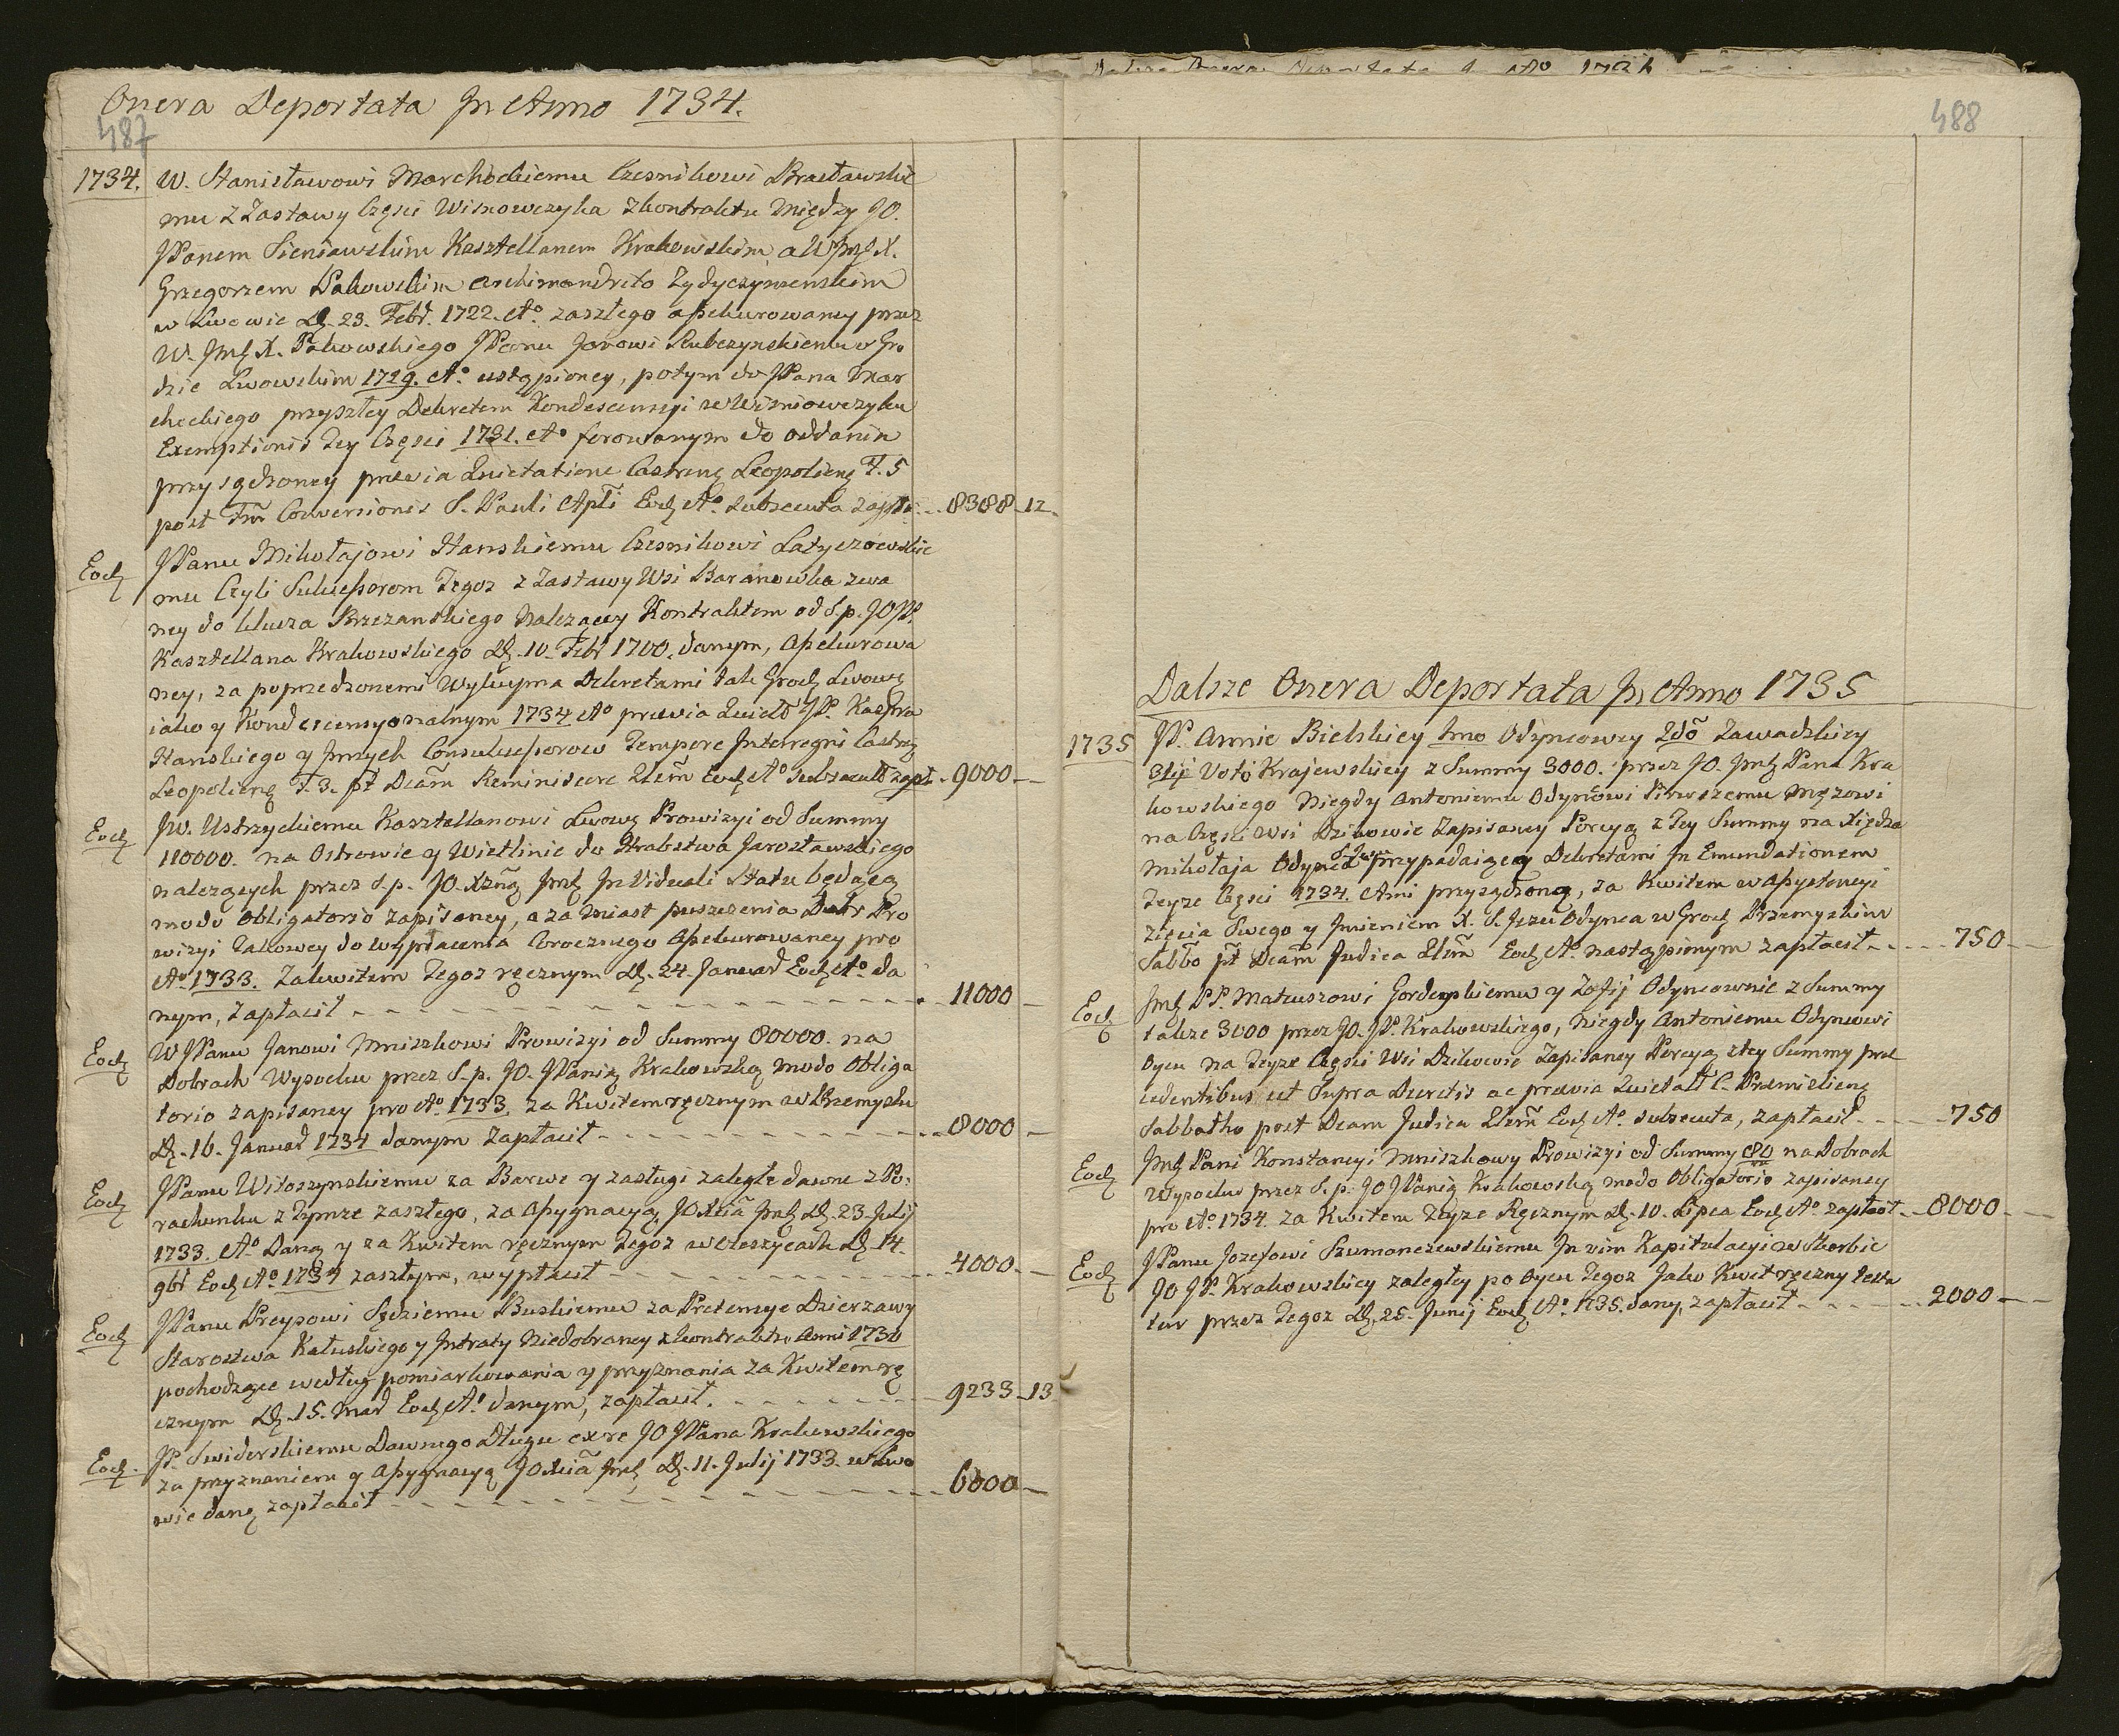 Onera Deportata In Anno 1734.
487
1734. W. Stanisławowi Marchockiemu Czesnikowi Bracławskie
mu z Zastawy Częsci Wisnowczyka z kontraktu między JO.
JPanem Sieniawskim Kasztellanem Krakowskim, a WJmę X.
Grzegorzem Pakowskim Archimandrito Zydyczynenskim
w Lwowie Dę. 23. Febr. 1722. Ao. zaszłego assekurowaney przez
W. Jmę X. Pakowskiego JPanu Janowi Skubczynskiemu w Gro
dzie Lwowskim 1729. Ao. ustąpioney, potym do JPana Mar
chockiego przyszłey Dekretem Kondescensyi w Wisniowczyku
Exemptionis Tey Częsci 1731. Ao ferowanym do oddania
przysądzoney prævia Quietatione Castren Leopolien F. 5
post Fm Conversionis S. Pauli Apli Eodę Ao. subsecuta zapłt. 8388 12.
Eodę JPanu Mikołajowi Hanskiemu Czesnikowi Latyczowskie
mu Czyli Sukcessorom Tegoz z Zastawy Wsi Baranowka zwa
ney do klucza Brzezanskiego Nalezący Kontraktem od S. p. JOJP.
Kasztellana Krakowskiego Dę. 10. Febr 1700. danym, assekurowa
ney, za poprzedzonemi Wykupna Dekretami tak Grodę Lwowę
iako y Kondescensyonalnym 1734 Ao prævia Quietõ JP. Kaspra
Hanskiego y Jnnych Consukcessorow Tempore Interregni Castrę
Leopolienę F. 3. pt Dcam Reminiscere Qlem Eodę Ao subsecutõ zapłt. 9000
Eodę JW. Ustrzyckiemu Kasztellanowi Lwowę Prowizyi od Summy
110000. na Ostrowie y Wietlinie do Hrabstwa Jarosławskiego
nalezących przez S. p. JO. Xznę Jmę In Viduali Statu będącą
modo obligatorio zapisaney, a za miast puszczenia Dobr Pro
wizyi Takowey do wypłacenia Corocznego Assekurowaney pro
Ao. 1733. Zakwitem Tegoz ręcznym Dę. 24. Januar Eodę Ao. da
nym, zapłacił 11000
Eodę WJPanu Janowi Mniszkowi Prowizyi od Summy 80000. na
Dobrach Wysocku przez S. p. JO. JPanią Krakowską modo Obliga
torio zapisaney pro Ao. 1733. za Kwitem ręcznym w Przemyslu
Dę. 16. Januar 1734 danym zapłacił 8000
Eodę JPanu Witoszynskiemu za Barwe y zasługi zaległe dawne z Po:
rachunku z Tymze zaszłego, za Assygnacyą JOXcia Jmę Dę. 23. Julij
1733. Ao Daną y za Kwitem ręcznym Tegoz w Oleszycach Dę. 14.
9br Eodę Ao. 1734 zaszłym, wypłacił 4000
Eodę JPanu Preysowi Sędziemu Buskiemu za Pretensye Dzierzawy
Starostwa Kałuskiego y Intraty Niedobraney z kontraktu Anni 1730
pochodzące według pomiarkowania y przyznania za Kwitem rę
cznym Dę. 15. Mar Eodę Ao. danym, zapłacił. 9233 13
Eodę. JP. Swiderskiemu Dawnego Długu exre JO JPana Krakowskiego
za przyznaniem y Assygnacyą JOXcia Jmę Dę. 11. Julij 1733. w Lwo
wie daną zapłacił 6000
488
Dalsze Onera Deportata In Anno 1735
1735 JP. Annie Bielskiey 1mo Odyncowey 2do Zawadzkiey
3tii Voti Krajewskiey z Summy 3000. przez JO. Jmę Pana Kra
kowskiego Niegdy Antoniemu Odyncowi Pierwszemu Mężowi
na Częsci Wsi Dzikowie Zapisaney Porcyą z Tey Summy na Xiędza
Mikołaja Odynca przypadaiącą Dekretami In Emundationem
Teyze Częsci 1734. Anni przysądzoną, za Kwitem w Assystencyi
Zięcia Swego y Imieniem X. S. Jezu Odynca w Grodę Przemyskim
Sabbo pt Dcam Judica Qlem Eodę Ao. nastąpionym zapłacił 750
Eodę Jmę PP. Mateuszowi Gorderskiemu y Zofij Odyncownie z Summy
takze 3000 przez JO. JP. Krakowskiego, Niegdy Antoniemu Odyncowi
Oycu na Teyze Częsci Wsi Dzikowie Zapisaney Porcyą z tey Summy præ
cedentibus ut Supra Decretis ac prævia Quietatt C. Premislienę
Sabbatho post Dcam Judica Qlem Eodę Ao. subsecuta, zapłacił 750
Eodę Jmę Pani Konstancyi Mniszkowy Prowizyi od Summy 80 na Dobrach
Wysocku przez S. p. JO JPanią Krakowską modo Obligatorio zapisaney
pro Ao. 1734. za Kwitem Teyze Ręcznym Dę. 10. Lipca Eodę Ao. zapłacił 8000
Eodę JPanu Jozefowi Szumanczewskiemu In vim Kapitulacyi w Skarbie
JO JP. Krakowskiey zaległey po Oycu Tegoz Jako Kwit ręczny testa
tur przez Tegoz Dę. 25. Junij Eodę Ao. 1735. dany, zapłacił 2000